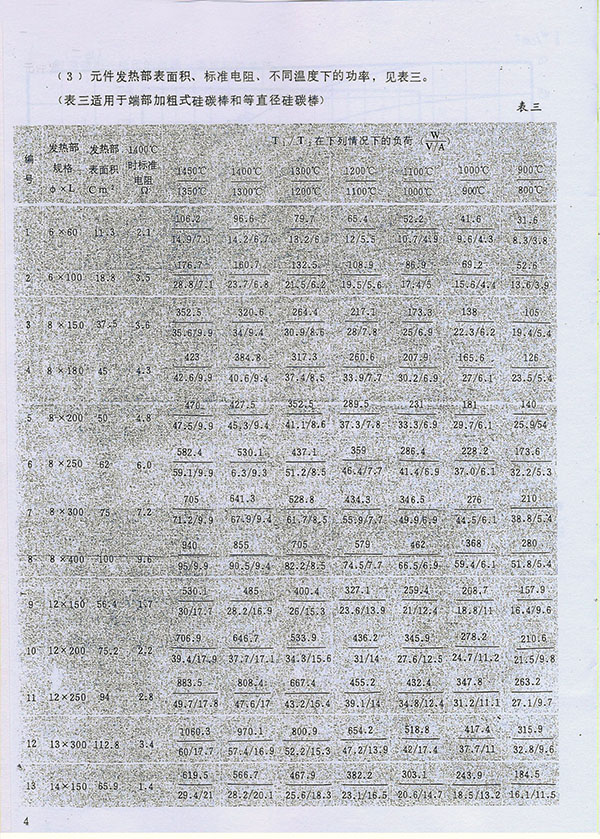 (3) 元件发热部表面积、标准电阻、不同温度下的功率，见表三。
(表三适用于端部加粗式硅碳棒和等直径硅碳棒)
表三
编号 发热部规格 φ×L 发热部表面积 Cm² 1400℃时标准电阻 Ω T₁/T₂在下列情况下的负荷 (W/V/A)
1450℃ 1400℃ 1300℃ 1200℃ 1100℃ 1000℃ 900℃
1350℃ 1300℃ 1200℃ 1100℃ 1000℃ 900℃ 800℃
106.2 96.6 79.7 65.4 52.2 41.6 31.6
1 6×60 11.3 2.1
14.9/7.1 14.2/6.7 13.2/6 12/5.5 10.7/4.9 9.6/4.3 8.3/3.8
176.7 160.7 132.5 108.9 86.9 69.2 52.6
2 6×100 18.8 3.5
28.8/7.1 23.7/6.8 21.5/6.2 19.5/5.6 17.4/5 15.6/4.4 13.6/3.9
352.5 320.6 264.4 217.1 173.3 138 105
3 8×150 37.5 3.6
35.6/9.9 34/9.4 30.9/8.6 28/7.8 25/6.9 22.3/6.2 19.4/5.4
423 384.8 317.3 260.6 207.9 165.6 126
4 8×180 45 4.3
42.6/9.9 40.6/9.4 37.4/8.5 33.9/7.7 30.2/6.9 27/6.1 23.5/5.4
470 427.5 352.5 289.5 231 181 140
5 8×200 50 4.8
47.5/9.9 45.3/9.4 41.1/8.6 37.3/7.8 33.3/6.9 29.7/6.1 25.9/54
582.4 530.1 437.1 359 286.4 228.2 173.6
6 8×250 62 6.0
59.1/9.9 6.3/9.3 51.2/8.5 46.4/7.7 41.4/6.9 37.0/6.1 32.2/5.3
705 641.3 528.8 434.3 346.5 276 210
7 8×300 75 7.2
71.2/9.9 67.9/9.4 61.7/8.5 55.9/7.7 49.9/6.9 44.5/6.1 38.8/5.4
940 855 705 579 462 368 280
8 8×400 100 9.6
95/9.9 90.5/9.4 82.2/8.5 74.5/7.7 66.5/6.9 59.4/6.1 51.8/5.4
530.1 485 400.4 327.1 259.4 208.7 157.9
9 12×150 56.4 1.7
30/17.7 28.2/16.9 26/15.3 23.6/13.9 21/12.4 18.8/11 16.4/9.6
706.9 646.7 533.9 436.2 345.9 278.2 210.6
10 12×200 75.2 2.2
39.4/17.9 37.7/17.1 34.3/15.6 31/14 27.6/12.5 24.7/11.2 21.5/9.8
883.5 808.4 667.4 455.2 432.4 347.8 263.2
11 12×250 94 2.8
49.7/17.8 47.6/17 43.2/15.4 39.1/14 34.8/12.4 31.2/11.1 27.1/9.7
1060.3 970.1 800.9 654.2 518.8 417.4 315.9
12 13×300 112.8 3.4
60/17.7 57.4/16.9 52.2/15.3 47.2/13.9 42/17.4 37.7/11 32.8/9.6
619.5 566.7 467.9 382.2 303.1 243.9 184.5
13 14×150 65.9 1.4
29.4/21 28.2/20.1 25.6/18.3 23.1/16.5 20.6/14.7 18.5/13.2 16.1/11.5
4